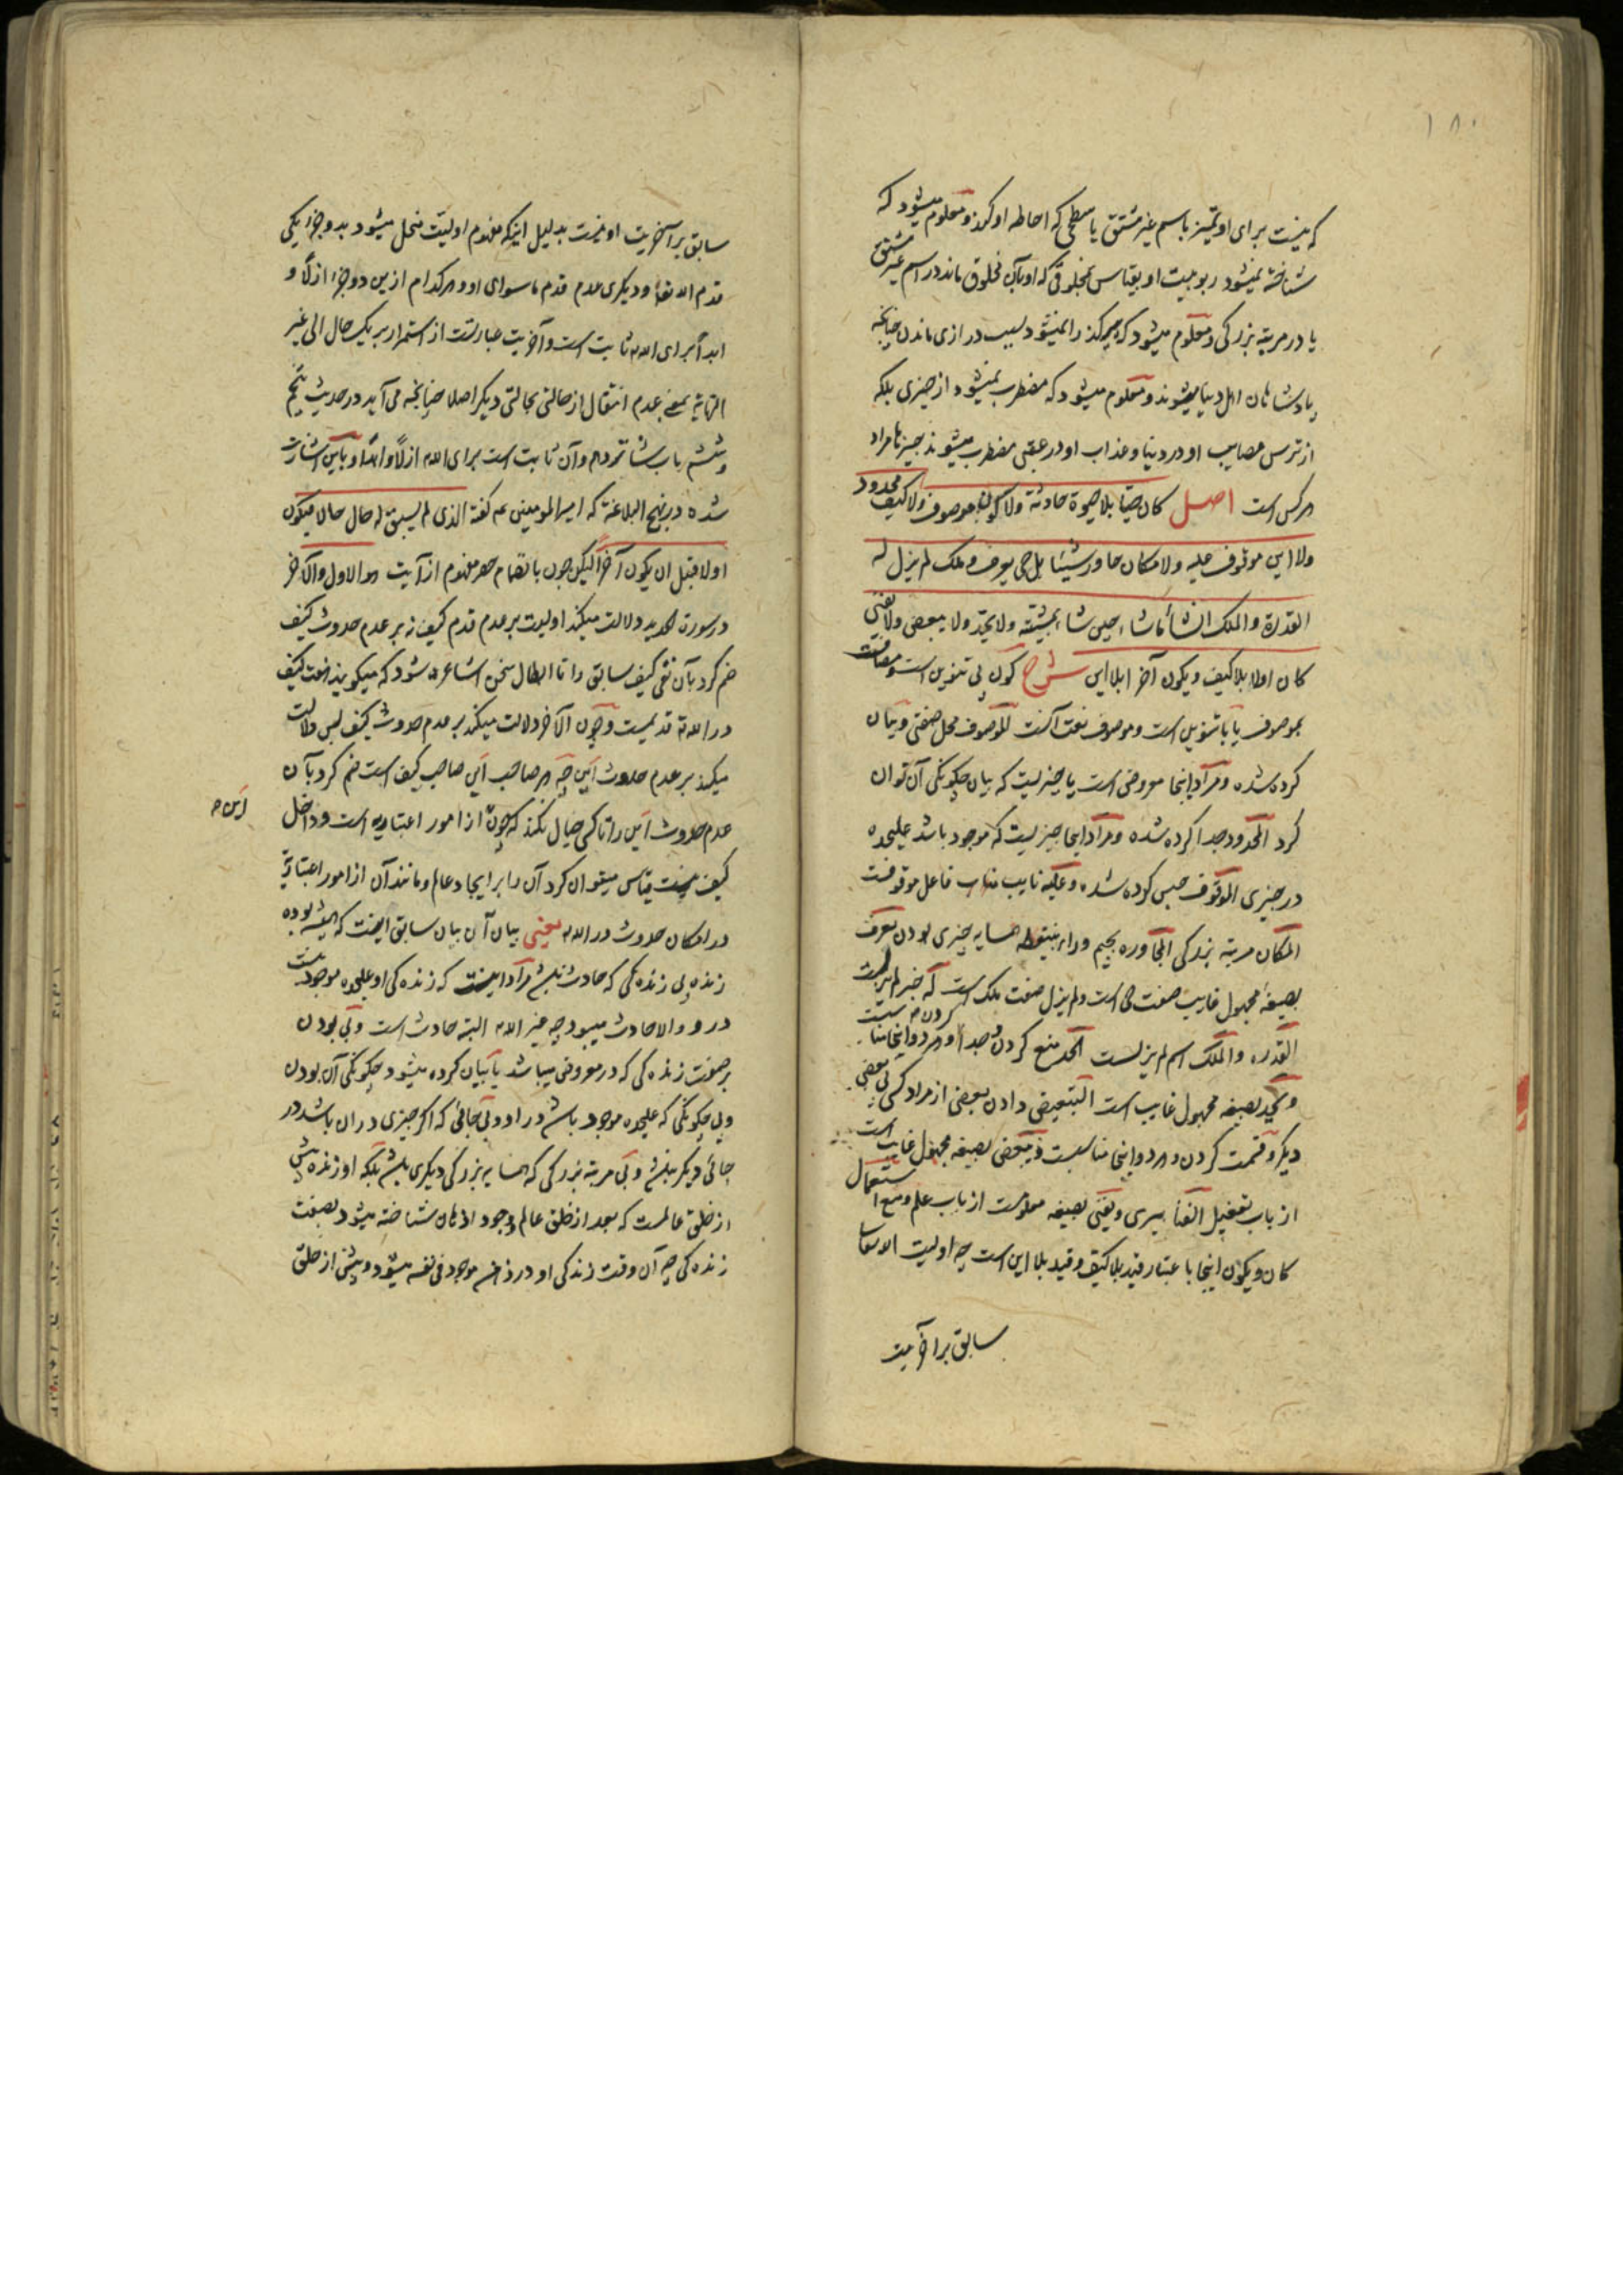 ۱۸۰
که نیست برای او تمیز باسم غیر مشتق یا سطحی که احاطه او کند و معلوم میشود که
شناخته نمیشود ربوبیت او بقیاس بمخلوقی که او بآن مخلوق ماند در اسم غیر مشتق
یا در مرتبه بزرگی و معلوم میشود که هیچ کند را نمیشود بسبب درازی ماندن چنانچه
پادشاهان اهل دنیا میشوند و معلوم میشود که مضطرب نمیشود از چیزی بلکه
از ترس مصایب او در دنیا و عذاب او در عقبی مضطرب میشوند چیزها مراد
هر کس است اصل کان حیا بلا حیوة حادثة ولا کون موصوف ولا کیف محدود
ولا این موقوف علیه ولا مکان جاور شیئا بل حی یعرف و ملک لم یزل له
القدرة والملک انشأ ما شاء حین شاء بمشیته ولا یحد ولا یبعض ولا یفنی
کان اولا بلا کیف ویکون آخرا بلا این شرح کون بی تنوین است و مضافست
بموصوف یا با تنوین است و موصوف نعت آنست الموصوف محل صفتی و بیان
کرده شده و مراد اینجا معروضی است یا چیزیست که بیان چگونگی آن توان
کرد المحدود جدا کرده شده و مراد اینجا چیزیست که موجود باشد علیحده
در چیزی الموقوف حبس کرده شده و علیه نایب مناب فاعل موقوفست
المکان مرتبه بزرگی المجاوره بجیم و راء بینقطه همسایه چیزی بودن یعرف
بصیغه مجهول غایب صفت حی است و لم یزل صفت ملک است که خبر لم یزلست
القدره والملک اسم لم یزلست الحد منع کردن و جدا کردن و هر دو اینجا مناسبست
و یحد بصیغه مجهول غایب است التبعیض دادن بعضی از مراد کسی بی بعضی
دیگر و قسمت کردن و هر دو اینجا مناسبست و یبعض بصیغه مجهول غایب است
از باب تفعیل الفنا سپری و یفنی بصیغه معلومست از باب علم و منع استعمال
کان و یکون اینجا باعتبار قید بلا کیف و قید بلا این است چه اولیت الله تعالی
سابق بر آخریت
سابق بر آخریت او نیست بدلیل اینکه مفهوم اولیت منحل میشود بدو جزء یکی
قدم الله تعالی و دیگری عدم قدم ماسوای او و هر کدام ازین دو جزء ازلا و
ابدا برای الله ثابت است و آخریت عبارتست از استمرار بر یک حال الی غیر
النهایة بمعنی عدم انتقال از حالتی بحالتی دیگر اصلا چنانچه می آید در حدیث پنجم
و ششم باب شانزدهم و آن ثابت است برای الله ازلا و ابدا و باین اشارت
شده در نهج البلاغة که امیر المومنین عم گفته الذی لم یسبق له حال حالا فیکون
اولا قبل ان یکون آخرا لیکن چون بانضمام حصر مفهوم از آیت هو الاول والآخر
در سورت الحدید دلالت میکند اولیت بر عدم قدم کیف نه بر عدم حدوث کیف
ضم کرد بآن نفی کیف سابق را تا ابطال سخن اشاعره شود که میگویند هفت کیف
در الله قدیمست و چون الآخر دلالت میکند بر عدم حدوث کیف پس دلالت
میکند بر عدم حدوث این چه هر صاحب این صاحب کیف است ضم کرد بآن
عدم حدوث این را تا کسی خیال نکند که چون از امور اعتباریه است و داخل
این
کیف نیست قیاس میتوان کرد آن را بر ایجاد عالم و مانند آن از امور اعتباریه
در امکان حدوث در الله یعنی بیان آن بیان سابق اینست که همیشه بوده
زنده بی زنده گی که حادث باشد مراد اینست که زنده گی او علیحده موجود نیست
در او والا حادث میبود چه غیر الله البته حادث است و بی بودن
بر صفت زنده گی که در معروضی میباشد یا بیان کرده میشود چگونگی آن بودن
و بی چگونگی که علیحده موجود باشد در او و بی جائی که اگر چیزی در آن باشد در
جائی دیگر نباشد و بی مرتبه بزرگی که همسایه بزرگی دیگری باشد بلکه او زنده پیش
از خلق عالمست که بعد از خلق عالم و وجود اذهان شناخته میشود بصفت
زنده گی چه آن وقت زندگی او در ذهن موجود فی نفسه میشود و پیش از خلق